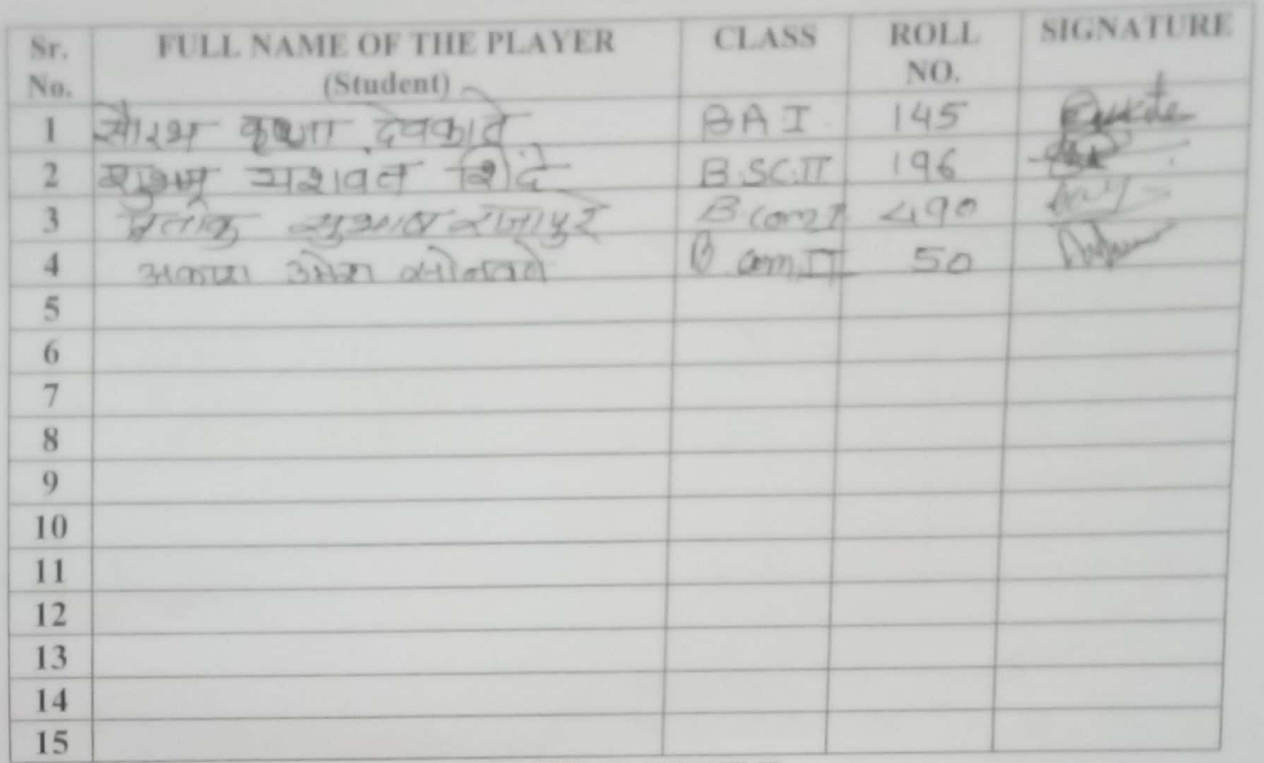 Sr. No. FULL NAME OF THE PLAYER (Student) CLASS ROLL NO. SIGNATURE
1 सौरभ कृष्णा देवकाते BA I 145
2 शुभम यशवंत शिंदे B.SC.II 196
3 प्रतीक सुभाष राजापुरे B.com I 490
4 B com II 50
5
6
7
8
9
10
11
12
13
14
15